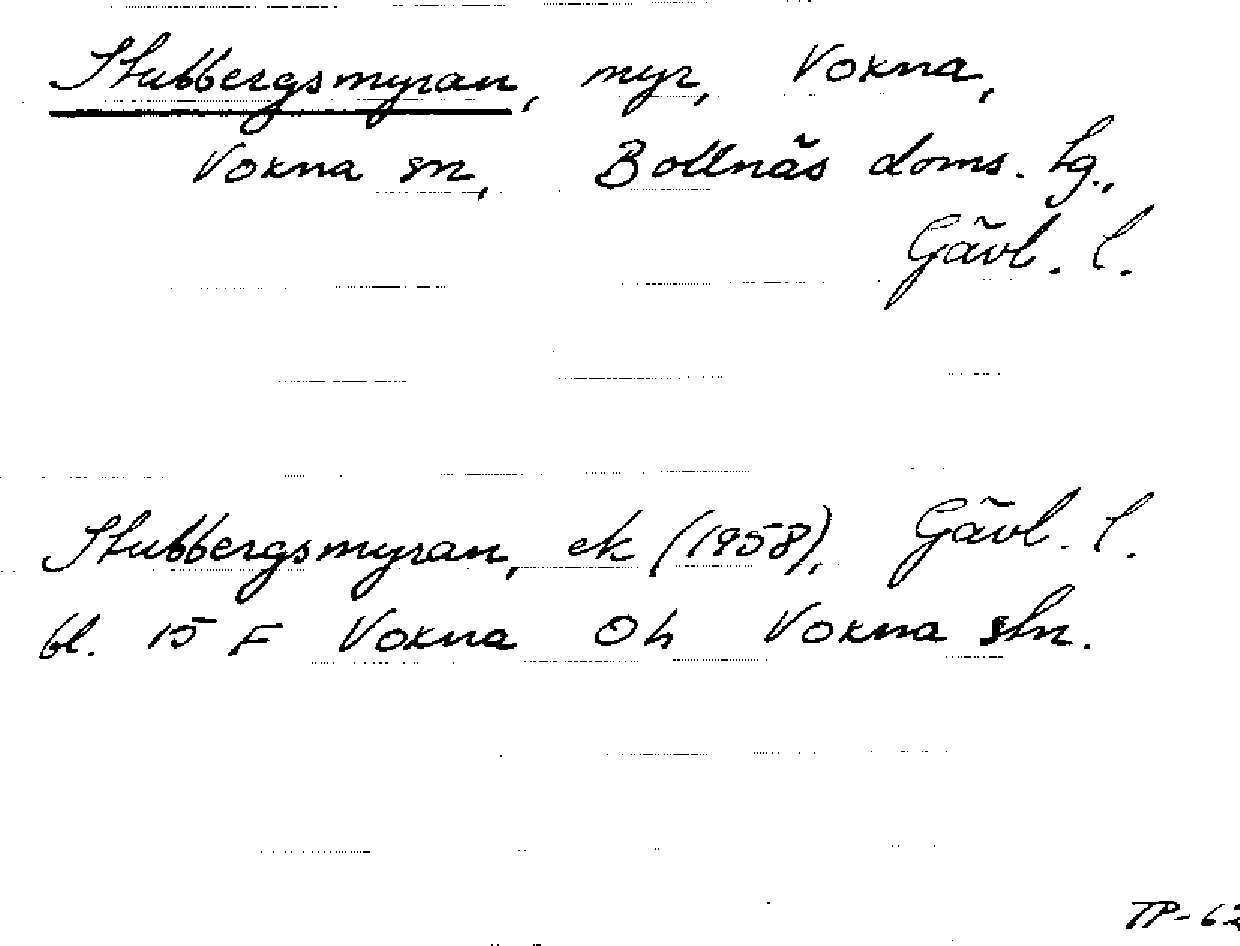 Stubbergsmyran, myr, Voxna,
Voxna sn, Bollnäs doms. lg.,
Gävl. l.
Stubbergsmyran, ek (1958), Gävl. l.
bl. 15 F Voxna Oh Voxna sln.
TP-62